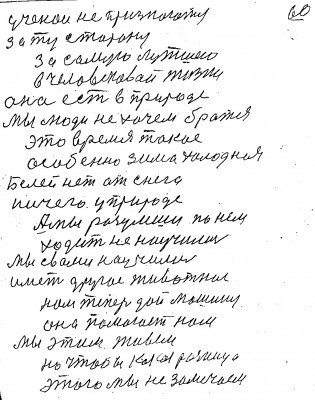 ученои не призноются 60
за ту сторону
за самую лутшею
в человековай жизни
она ест в природе
мы люди не хочем братся
это время такое
особенно зима холодная
Белей нет от снега
ничего у природе
Амы разумши по нем
ходит не научилис
мы свами научилис
имет другое животное
нам тепер дай машину
она помогает нам
мы этим живем
но чтобы какая разница
этого мы не замечаем